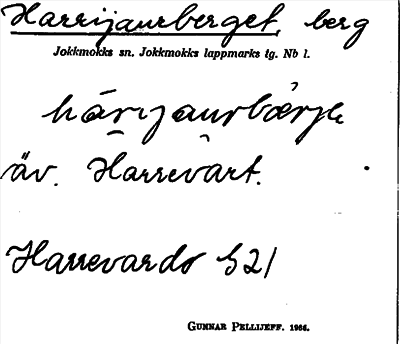 Harrijaurberget, berg
Jokkmokks sn. Jokkmokks lappmarks tg. Nb l.
härijaurbærje
äv. Harrevárt.
Harrevardo 521
GUNNAR PELLIJEFF. 1966.